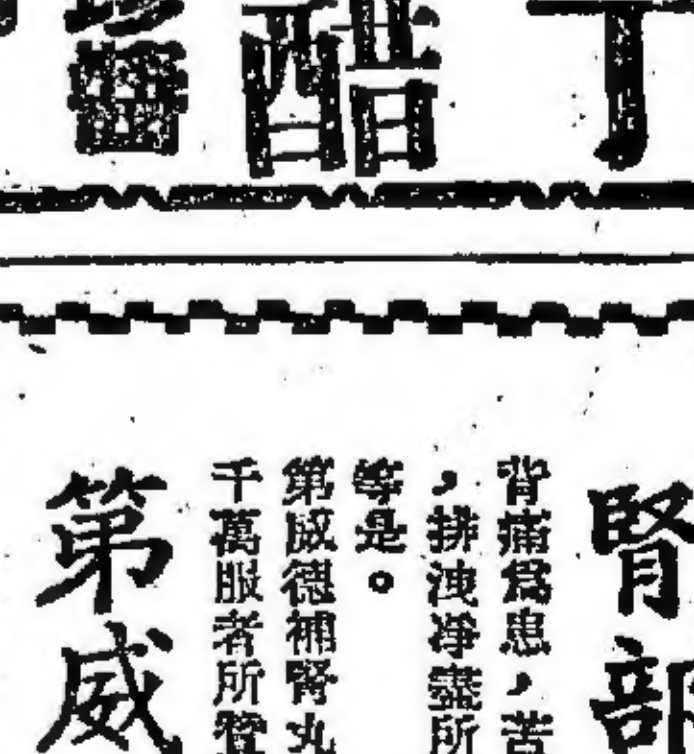 丁
醋
腎部
背痛爲患，苦
，排洩淨盡所
等是。
第威德補腎丸
千萬服者所贊
第威